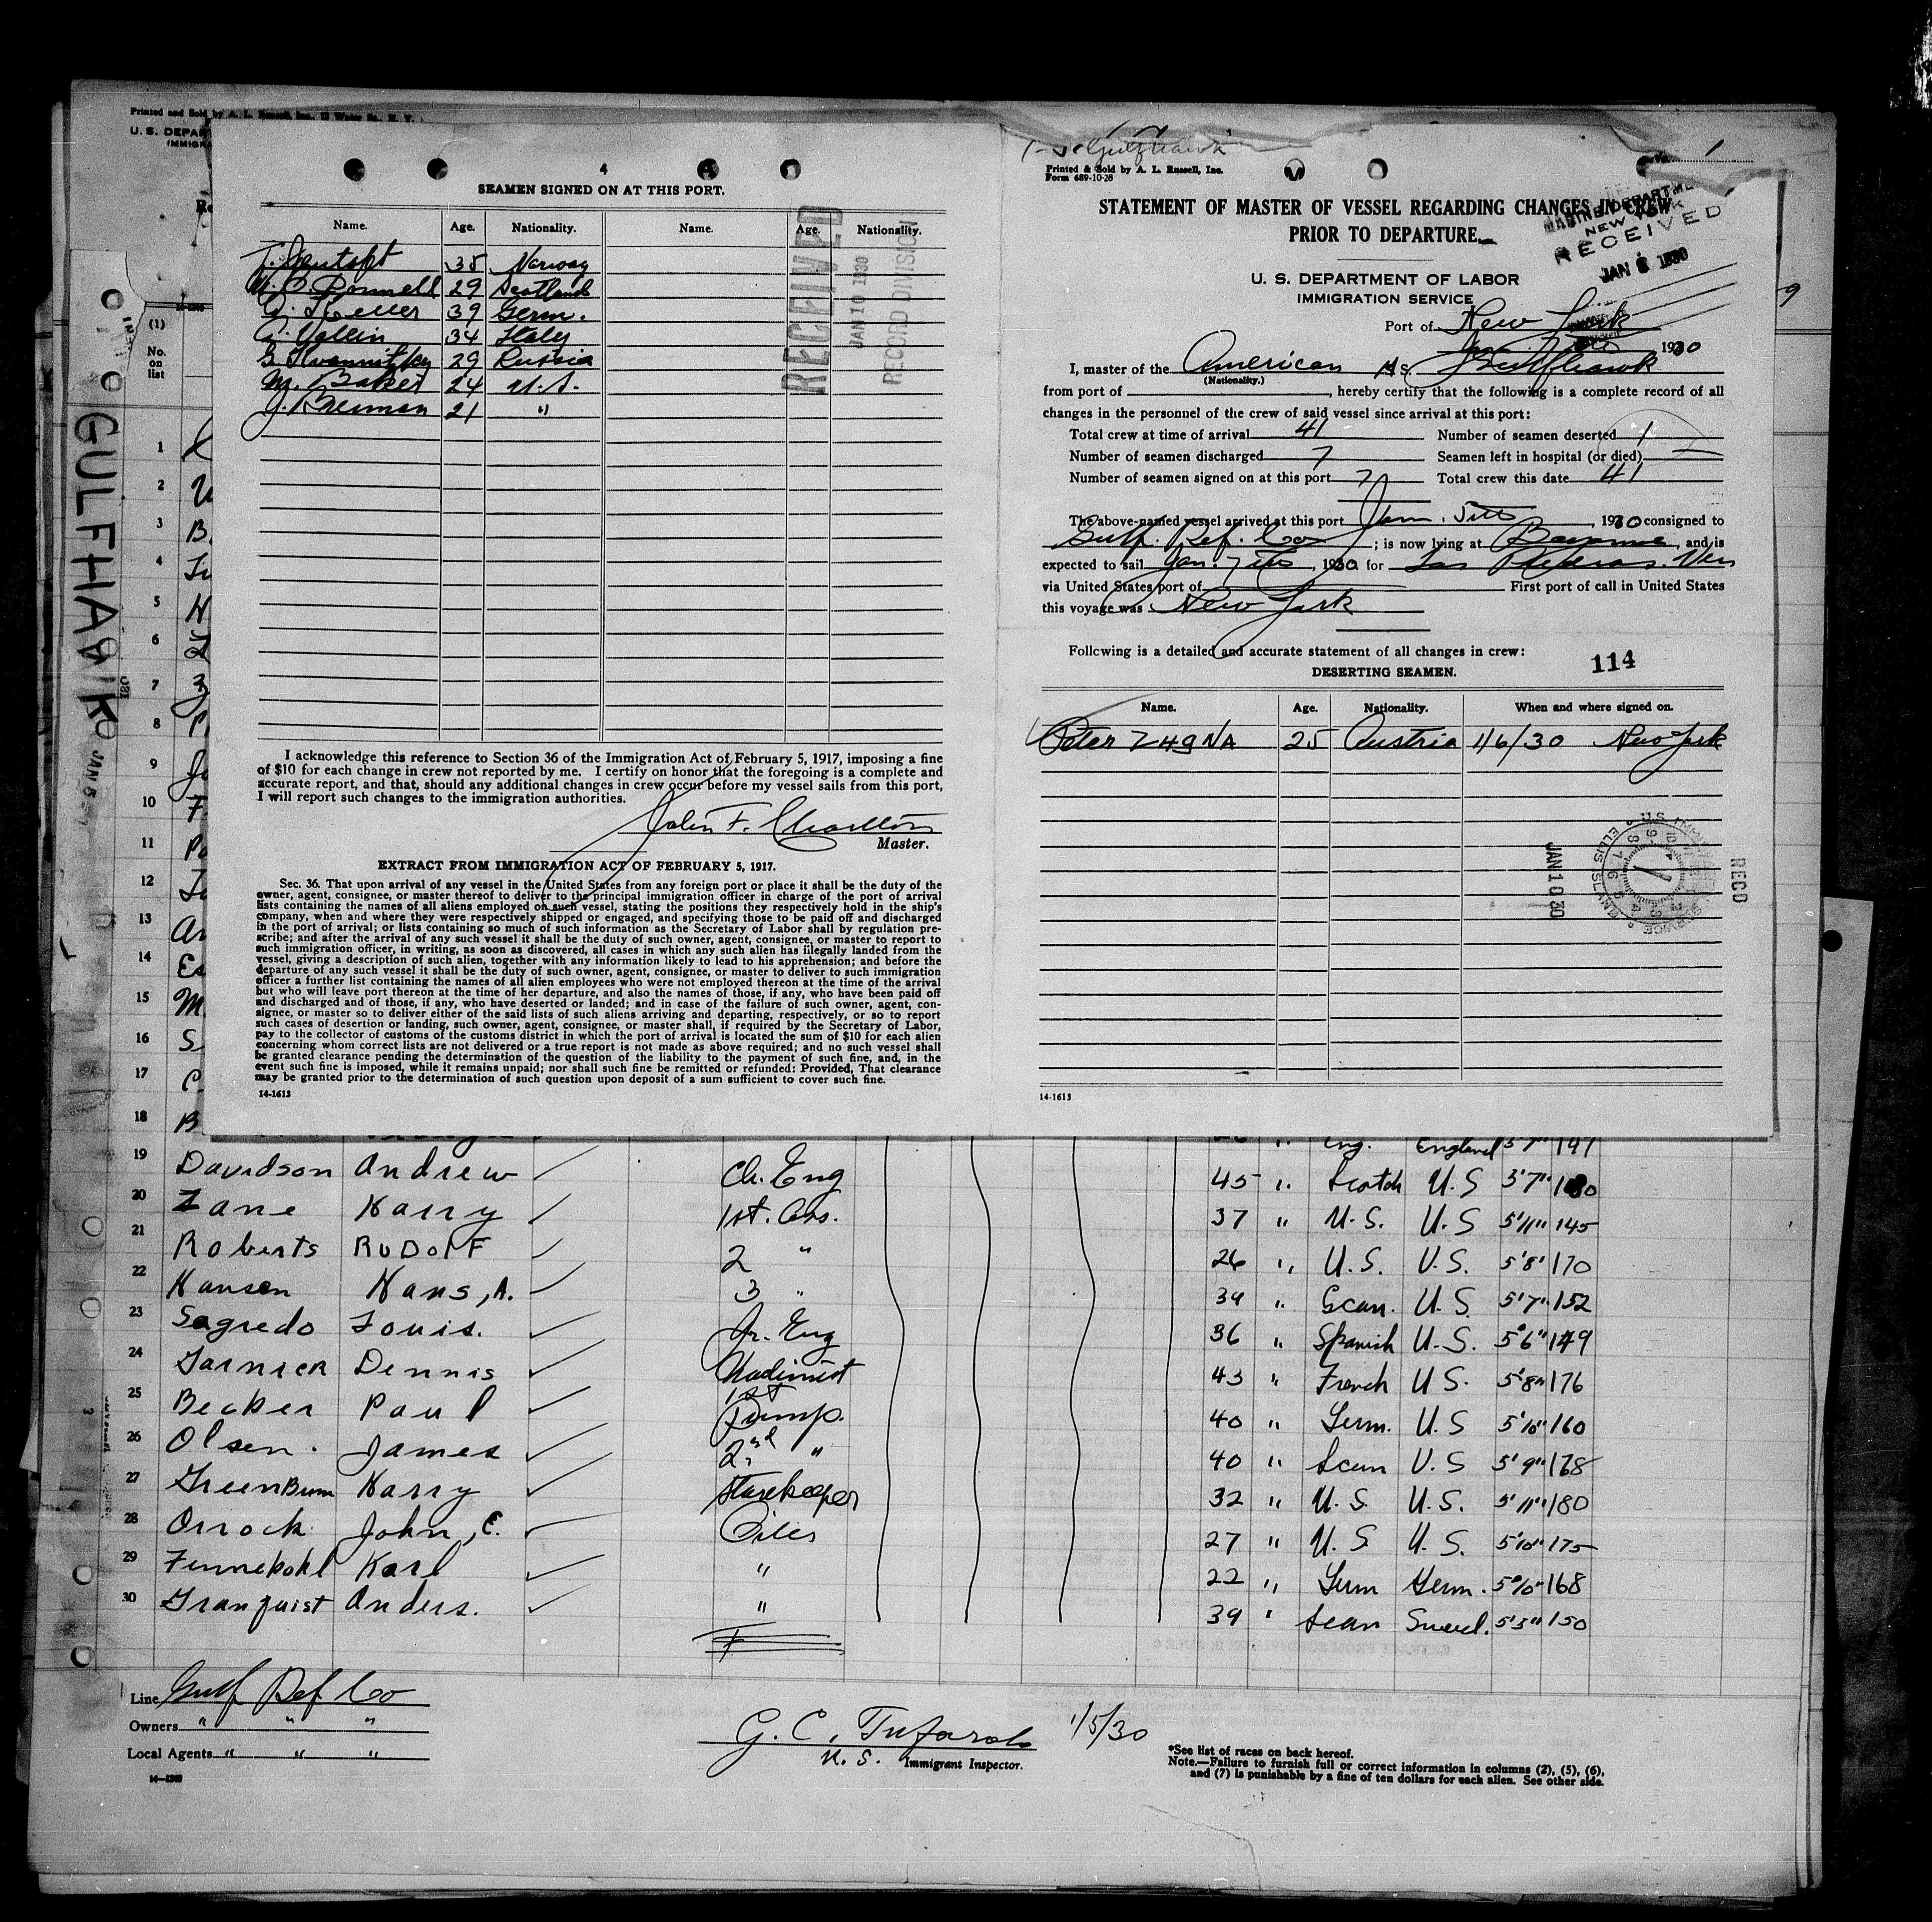 Printed and Sold by A. L. Russell, Inc.
U. S. DEPAR
IMMIGRA
4
SEAMEN SIGNED ON AT THIS PORT.
Name. Age. Nationality. Name. Age. Nationality.
35 Norway
29 Scotland
39 Germ.
34 Italy
29 Russia
M. Baker 24 U.S.
21 "
RECEIVED
JAN 10 1930
RECORD DIVISION
I acknowledge this reference to Section 36 of the Immigration Act of February 5, 1917, imposing a fine
of $10 for each change in crew not reported by me. I certify on honor that the foregoing is a complete and
accurate report, and that, should any additional changes in crew occur before my vessel sails from this port,
I will report such changes to the immigration authorities.
John F. Charlton
Master.
EXTRACT FROM IMMIGRATION ACT OF FEBRUARY 5, 1917.
Sec. 36. That upon arrival of any vessel in the United States from any foreign port or place it shall be the duty of the
owner, agent, consignee, or master thereof to deliver to the principal immigration officer in charge of the port of arrival
lists containing the names of all aliens employed on such vessel, stating the positions they respectively hold in the ship's
company, when and where they were respectively shipped or engaged, and specifying those to be paid off and discharged
in the port of arrival; or lists containing so much of such information as the Secretary of Labor shall by regulation pre-
scribe; and after the arrival of any such vessel it shall be the duty of such owner, agent, consignee, or master to report to
such immigration officer, in writing, as soon as discovered, all cases in which any such alien has illegally landed from the
vessel, giving a description of such alien, together with any information likely to lead to his apprehension; and before the
departure of any such vessel it shall be the duty of such owner, agent, consignee, or master to deliver to such immigration
officer a further list containing the names of all alien employees who were not employed thereon at the time of the arrival
but who will leave port thereon at the time of her departure, and also the names of those, if any, who have been paid off
and discharged and of those, if any, who have deserted or landed; and in case of the failure of such owner, agent, con-
signee, or master so to deliver either of the said lists of such aliens arriving and departing, respectively, or so to report
such cases of desertion or landing, such owner, agent, consignee, or master shall, if required by the Secretary of Labor,
pay to the collector of customs of the customs district in which the port of arrival is located the sum of $10 for each alien
concerning whom correct lists are not delivered or a true report is not made as above required; and no such vessel shall
be granted clearance pending the determination of the question of the liability to the payment of such fine, and, in the
event such fine is imposed, while it remains unpaid; nor shall such fine be remitted or refunded: Provided, That clearance
may be granted prior to the determination of such question upon deposit of a sum sufficient to cover such fine.
14-1613
Gulfhawk
Printed & Sold by A. L. Russell, Inc.
Form 689-10-28
No. 1
STATEMENT OF MASTER OF VESSEL REGARDING CHANGES IN CREW
PRIOR TO DEPARTURE.
MARINE DEPARTMENT
NEW YORK
RECEIVED
JAN 1930
U. S. DEPARTMENT OF LABOR
IMMIGRATION SERVICE
Port of New York
1930
I, master of the American M S. Gulfhawk
(Nationality.)
from port of , hereby certify that the following is a complete record of all
changes in the personnel of the crew of said vessel since arrival at this port:
Total crew at time of arrival 41 Number of seamen deserted 1
Number of seamen discharged 7 Seamen left in hospital (or died)
Number of seamen signed on at this port 7 Total crew this date 41
The above-named vessel arrived at this port Jan. 5th, 1930 consigned to
Gulf. Ref. Co ; is now lying at Bayonne, and is
expected to sail Jan. 7th, 1930 for Las Piedras. Ven
via United States port of First port of call in United States
this voyage was New York
Following is a detailed and accurate statement of all changes in crew:
114
DESERTING SEAMEN.
Name. Age. Nationality. When and where signed on.
Peter 25 Austria 1/6/30 New York
JAN 10 30
RECD
ELLIS ISLAND
14-1613
GULFHAWK
JAN 5
(1)
No.
on
list
1
2
3 B.
4
5
6
7
8
9 Jo
10 F
11 Pa
12
13 An
14
15 M
16 S
17 C
18 B Eng. England 5'7" 147
19 Davidson Andrew Ch. Eng 45 " Scotch U.S 5'7" 180
20 Lane Harry 1st. Ass. 37 " U.S. U.S 5'11" 145
21 Roberts RUDOLF 2 " 26 " U.S. U.S. 5'8" 170
22 Hansen Hans, A. 3 " 39 " Scan. U.S 5'7" 152
23 Sagredo Louis. Jr. Eng 36 " Spanish U.S. 5'6" 149
24 Garnier Dennis Machinist 43 " French U.S. 5'8" 176
25 Becker Paul 1st Pump. 40 " Germ. U.S 5'10" 160
26 Olsen. James 2nd " 40 " Scan U.S 5'9" 168
27 GreenBum Harry Storekeeper 32 " U.S. U.S. 5'11" 180
28 Orrock John, C. Oiler 27 " U.S U.S. 5'10" 175
29 Fennekohl Karl " 22 " Germ Germ. 5'10" 168
30 Granquist Anders. " 39 " Scan Swed. 5'5" 150
Line Gulf Ref Co
Owners " " "
Local Agents " " "
G. C. Tufarolo 1/5/30
U. S. Immigrant Inspector.
*See list of races on back hereof.
Note.—Failure to furnish full or correct information in columns (2), (5), (6),
and (7) is punishable by a fine of ten dollars for each alien. See other side.